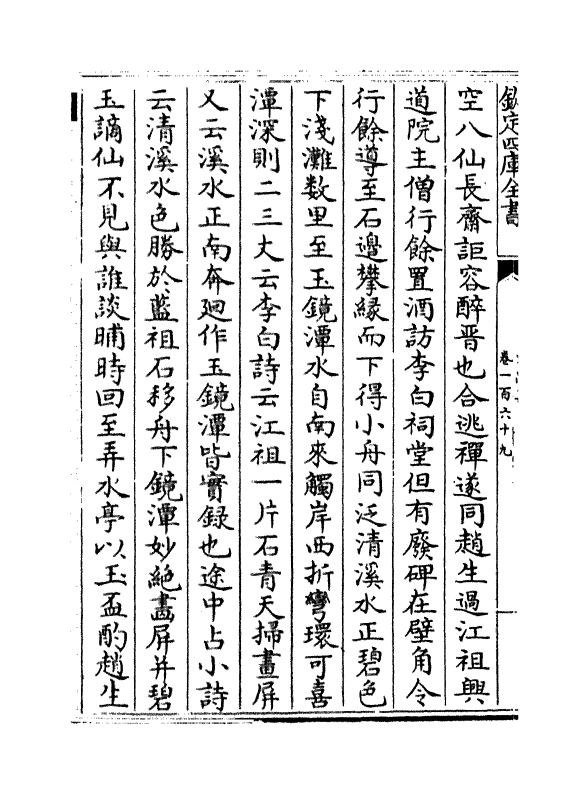 欽定四庫全書
卷一百六十九
空八仙長齋詎容醉晋也合逃禪遂同趙生過江祖興
道院主僧行餘置酒訪李白祠堂但有廢碑在壁角令
行餘導至石邉攀緣而下得小舟同泛清溪水正碧色
下淺灘数里至玉鏡潭水自南來觸岸西折彎環可喜
潭深則二三丈云李白詩云江祖一片石青天掃畫屏
又云溪水正南奔廻作玉鏡潭皆實録也途中占小詩
云清溪水色勝於藍祖石移舟下鏡潭妙絶畵屏并碧
玉謫仙不見與誰談晡時回至弄水亭以玉盃酌趙生